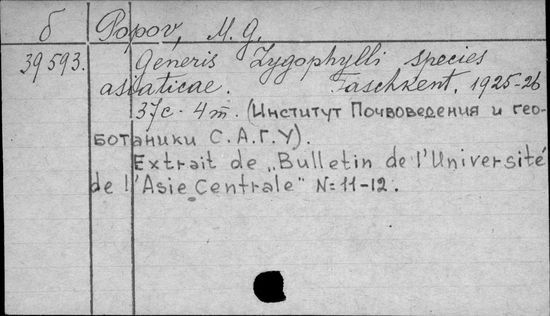 б Popov, M. G.
39593. Generis Zygophylli species
asiaticae. Taschkent, 1925-26
37c. 4 m. (Институт Почвоведения и гео-
ботаники С.А.Г.У).
Extrait de „Bulletin de l'Université
de l'Asie Centrale" N=11-12.